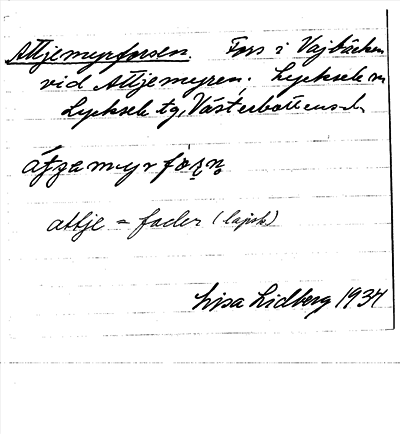 Attjemyrforsen. Fors i Vajbäcken
vid Attjemyren. Lycksele sn
Lycksele tg, Västerbottens l.
átjamyrfårsn̥
attje = fader (lapsk)
Lisa Lidberg 1934